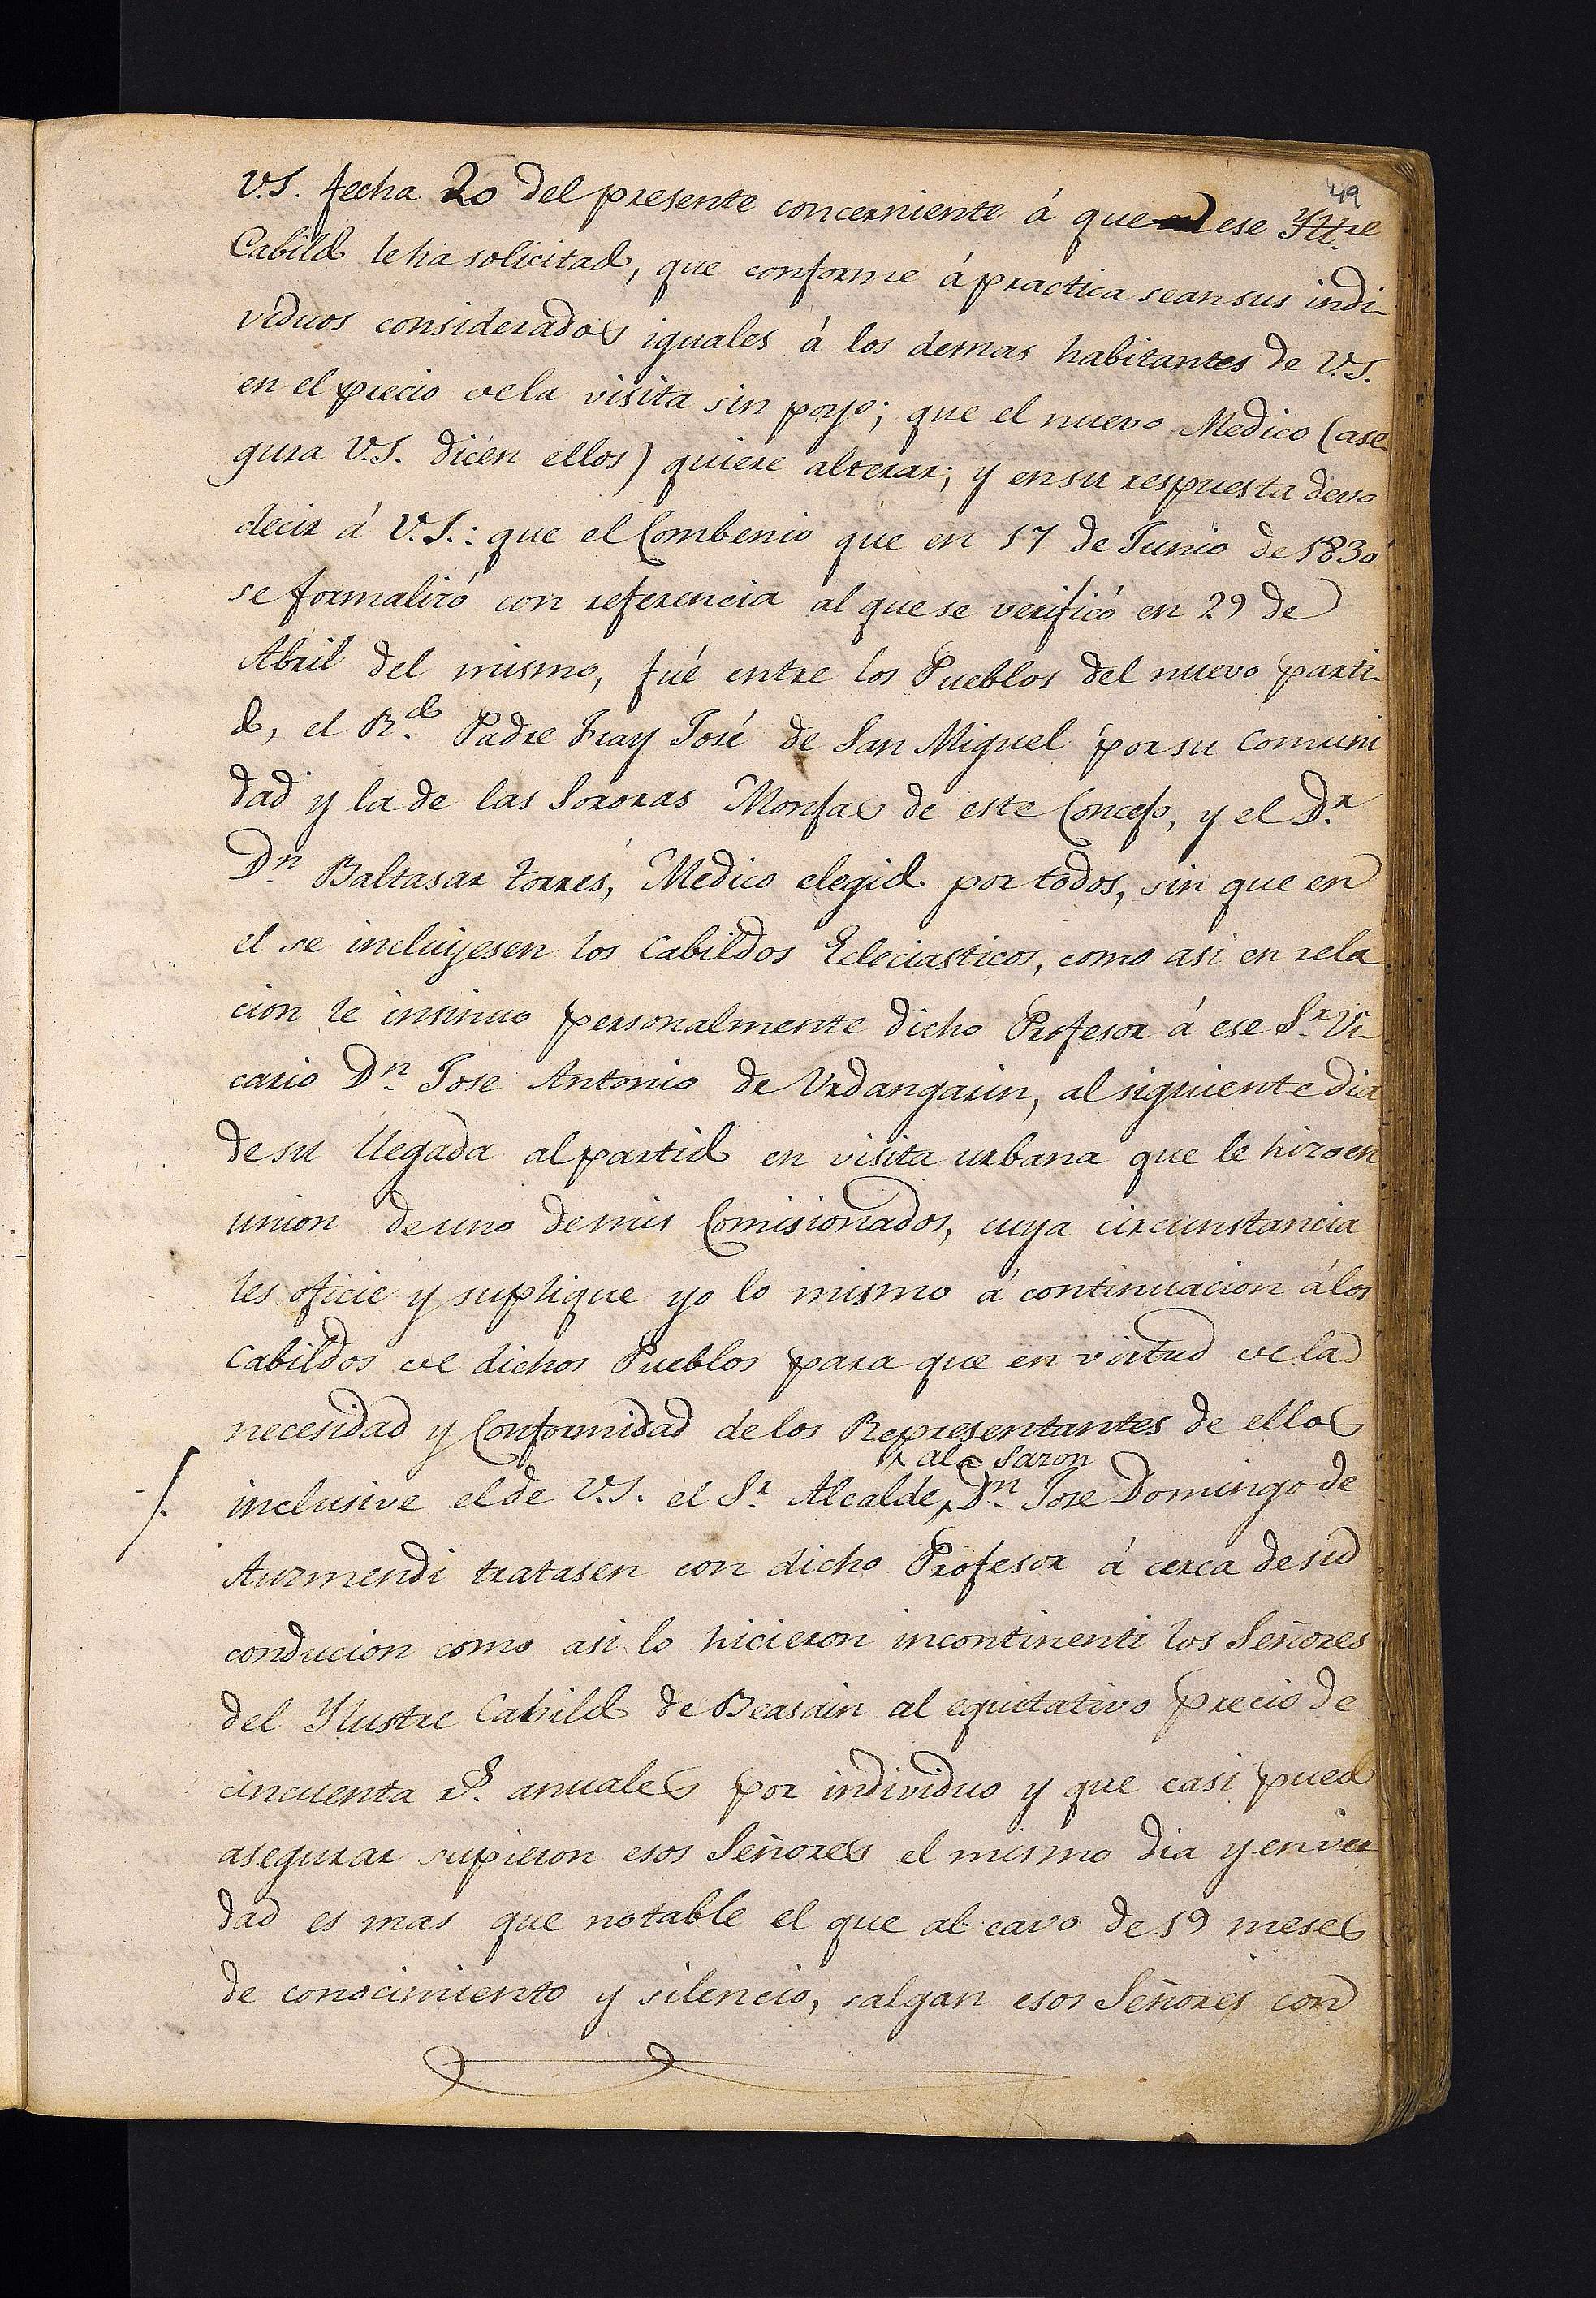 49
V.S. fecha 20 del presente concerniente á que ese Ylt.re
Cabildo le ha solicitado, que conforme á practica sean sus indi-
viduos considerados iguales á los demas habitantes de V.S.
en el precio de la visita sin poyo; que el nuevo Medico (ase
gura V.S. dicen ellos) quiere alterar; y en su respuesta devo
decir á V.S.: que el Combenio que en 17 de Junio de 1830
se formalizó con referencia al que se verificó en 29 de
Abril del mismo, fué entre los Pueblos del nuevo parti-
do, el R.do Padre Fray José de San Miguel por su comuni
dad y la de las Sororas Monjas de este Concejo, y el D.r
D.n Baltasar torres, Medico elegido por todos, sin que en
el se incluijesen los Cabildos Ecleciasticos, como asi en rela
cion le insinuo personalmente dicho Profesor á ese S.r Vi-
cario D.n Jose Antonio de Urdangarin, al siguiente dia
de su llegada al partido en visita urbana que le hizo en
union de uno de mis Comisionados, cuya circunstancia
les oficie y suplique yo lo mismo á continuacion á los
Cabildos de dichos Pueblos para que en virtud de la
necesidad y Conformidad de los Representantes de ellos
ala sazon
/. inclusive el de V.S. el S.r Alcalde, D.n Jose Domingo de
Auzmendi tratasen con dicho Profesor á cerca de su
conducion como asi lo hicieron incontinenti los Señores
del Ylustre Cabildo de Beasain al equitativo precio de
cincuenta r.s anuales por individuo y que casi puedo
asegurar supieron esos Señores el mismo dia y en ver
dad es mas que notable el que al cavo de 19 meses
de conocimiento y silencio, salgan esos Señores con